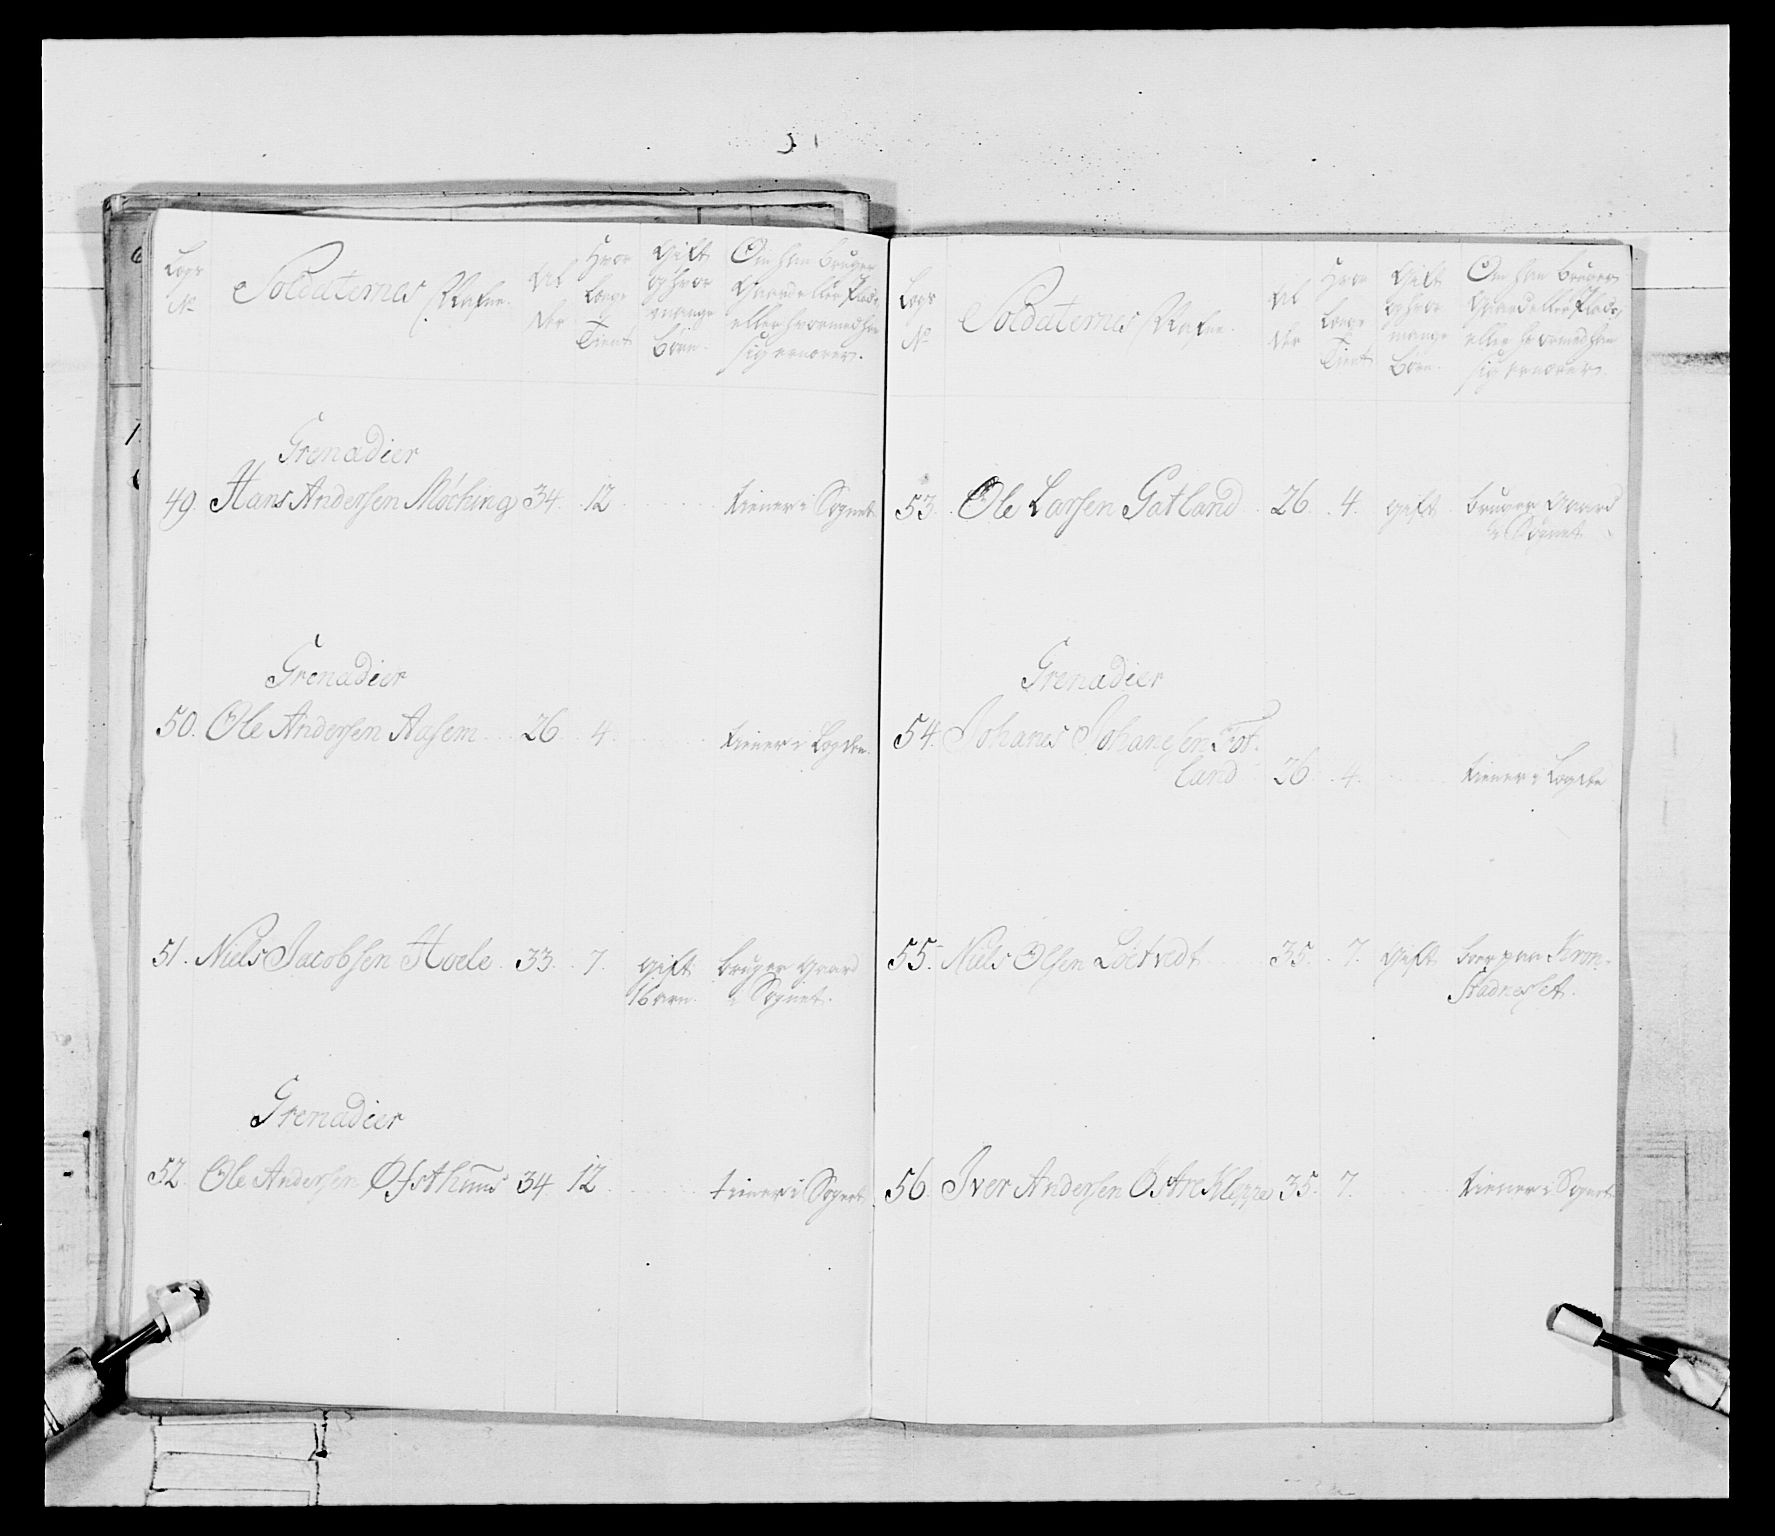 Logs No
Soldaternes Nafne.
Al der
Hvor Længe Tient
Gift og hvor mange Börn.
Om han bruger Gaard eller Plads, eller hvormed han sig ernærer.
Grenadier
49. Hans Andersen Möching 34. 12 tiener i Sognet
Grenadier
50. Ole Andersen Aasem 26. 4. tiener i Logde
51. Niels Jacobsen Hoele 33. 7. gift bruger gaard
1 barn. i Sognet.
Grenadier
52. Ole Andersen Østhuus 34 12 tiener i Sognet
Logs No
Soldaternes Nafne.
Al der
Hvor Længe Tient
Gift og hvor mange Börn.
Om han bruger Gaard eller Plads, eller hvormed han sig ernærer.
53. Ole Larsen Gatland 26. 4. gift bruger Gaard
i Sognet
Grenadier
54. Johanes Johanesen Fot-
land 26. 4. tiener i Logde
55. Niels Olsen Loitvedt 35. 7. Gift boer paa Kron-
Stadnesset.
56. Iver Andersen Östre Kleppe 35. 7. tiener i Sognet